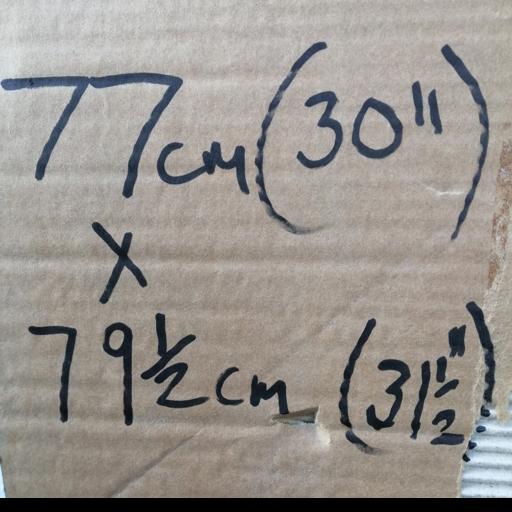 77cm (30")
x
79½cm (31½")